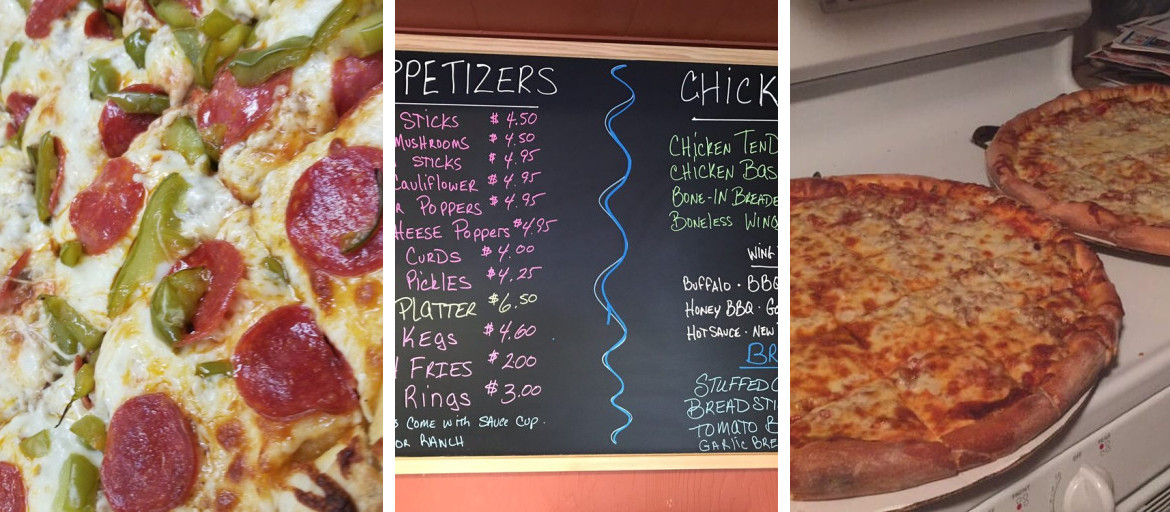 PPETIZERS
STICKS $4.50
MUSHROOMS $4.50
STICKS $4.95
CAULIFLOWER $4.95
R POPPERS $4.95
HEESE POPPERS $4.95
CURDS $4.00
PICKLES $4.25
PLATTER $6.50
KEGS $4.60
FRIES $2.00
RINGS $3.00
S COME WITH SAUCE CUP.
OR RANCH
CHICK
CHICKEN TEND
CHICKEN BAS
BONE-IN BREADE
BONELESS WING
WING
BUFFALO · BBQ
HONEY BBQ · GA
HOT SAUCE · NEW
BR
STUFFED C
BREAD STI
TOMATO B
GARLIC BRE
FRONT
OFF
REAR